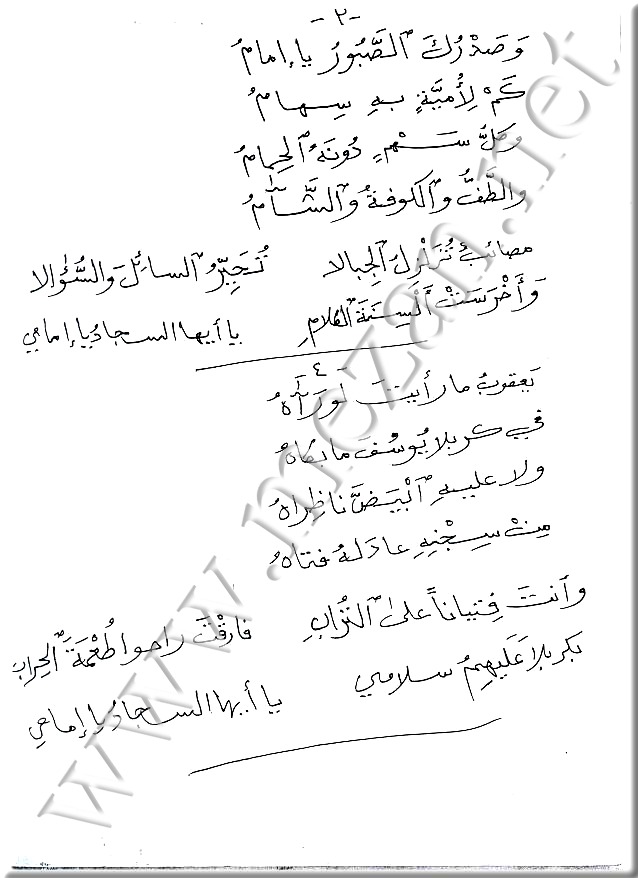 -٣-
وَصَدْرُكَ ٱلصَّبُورُ يا إمامُ
كَمْ لِأُميَّةٍ بِهِ سِهامُ
وكلُّ سَهْمٍ دُونَهُ ٱلحِمامُ
والطَّفُّ وٱلكوفةُ وٱلشَّامُ
مصائبٌ تُزَلْزِلُ ٱلجِبالا تُحَيِّرُ ٱلسائِلَ وَالسُّؤالا
وَأَخْرَسَتْ أَلْسِنَةَ ٱلكلامِ يا أيها السجادُ يا إمامي
-٤-
يَعقوبُ ما رأيتَ لَو رَآهُ
في كربلا يُوسُفَ ما بكاهُ
ولا عليهِ ٱبْيَضَّ ناظِراهُ
مِنْ سِجْنِهِ عادَ لهُ فتاهُ
وأنتَ فِتياناً على ٱلتُّرابِ فارقْتَ راحوا طُعْمَةَ ٱلحِرابِ
بكربلا عَلَيهِمُ سلامي يا أيها السجادُ يا إمامي
www.mezan.net